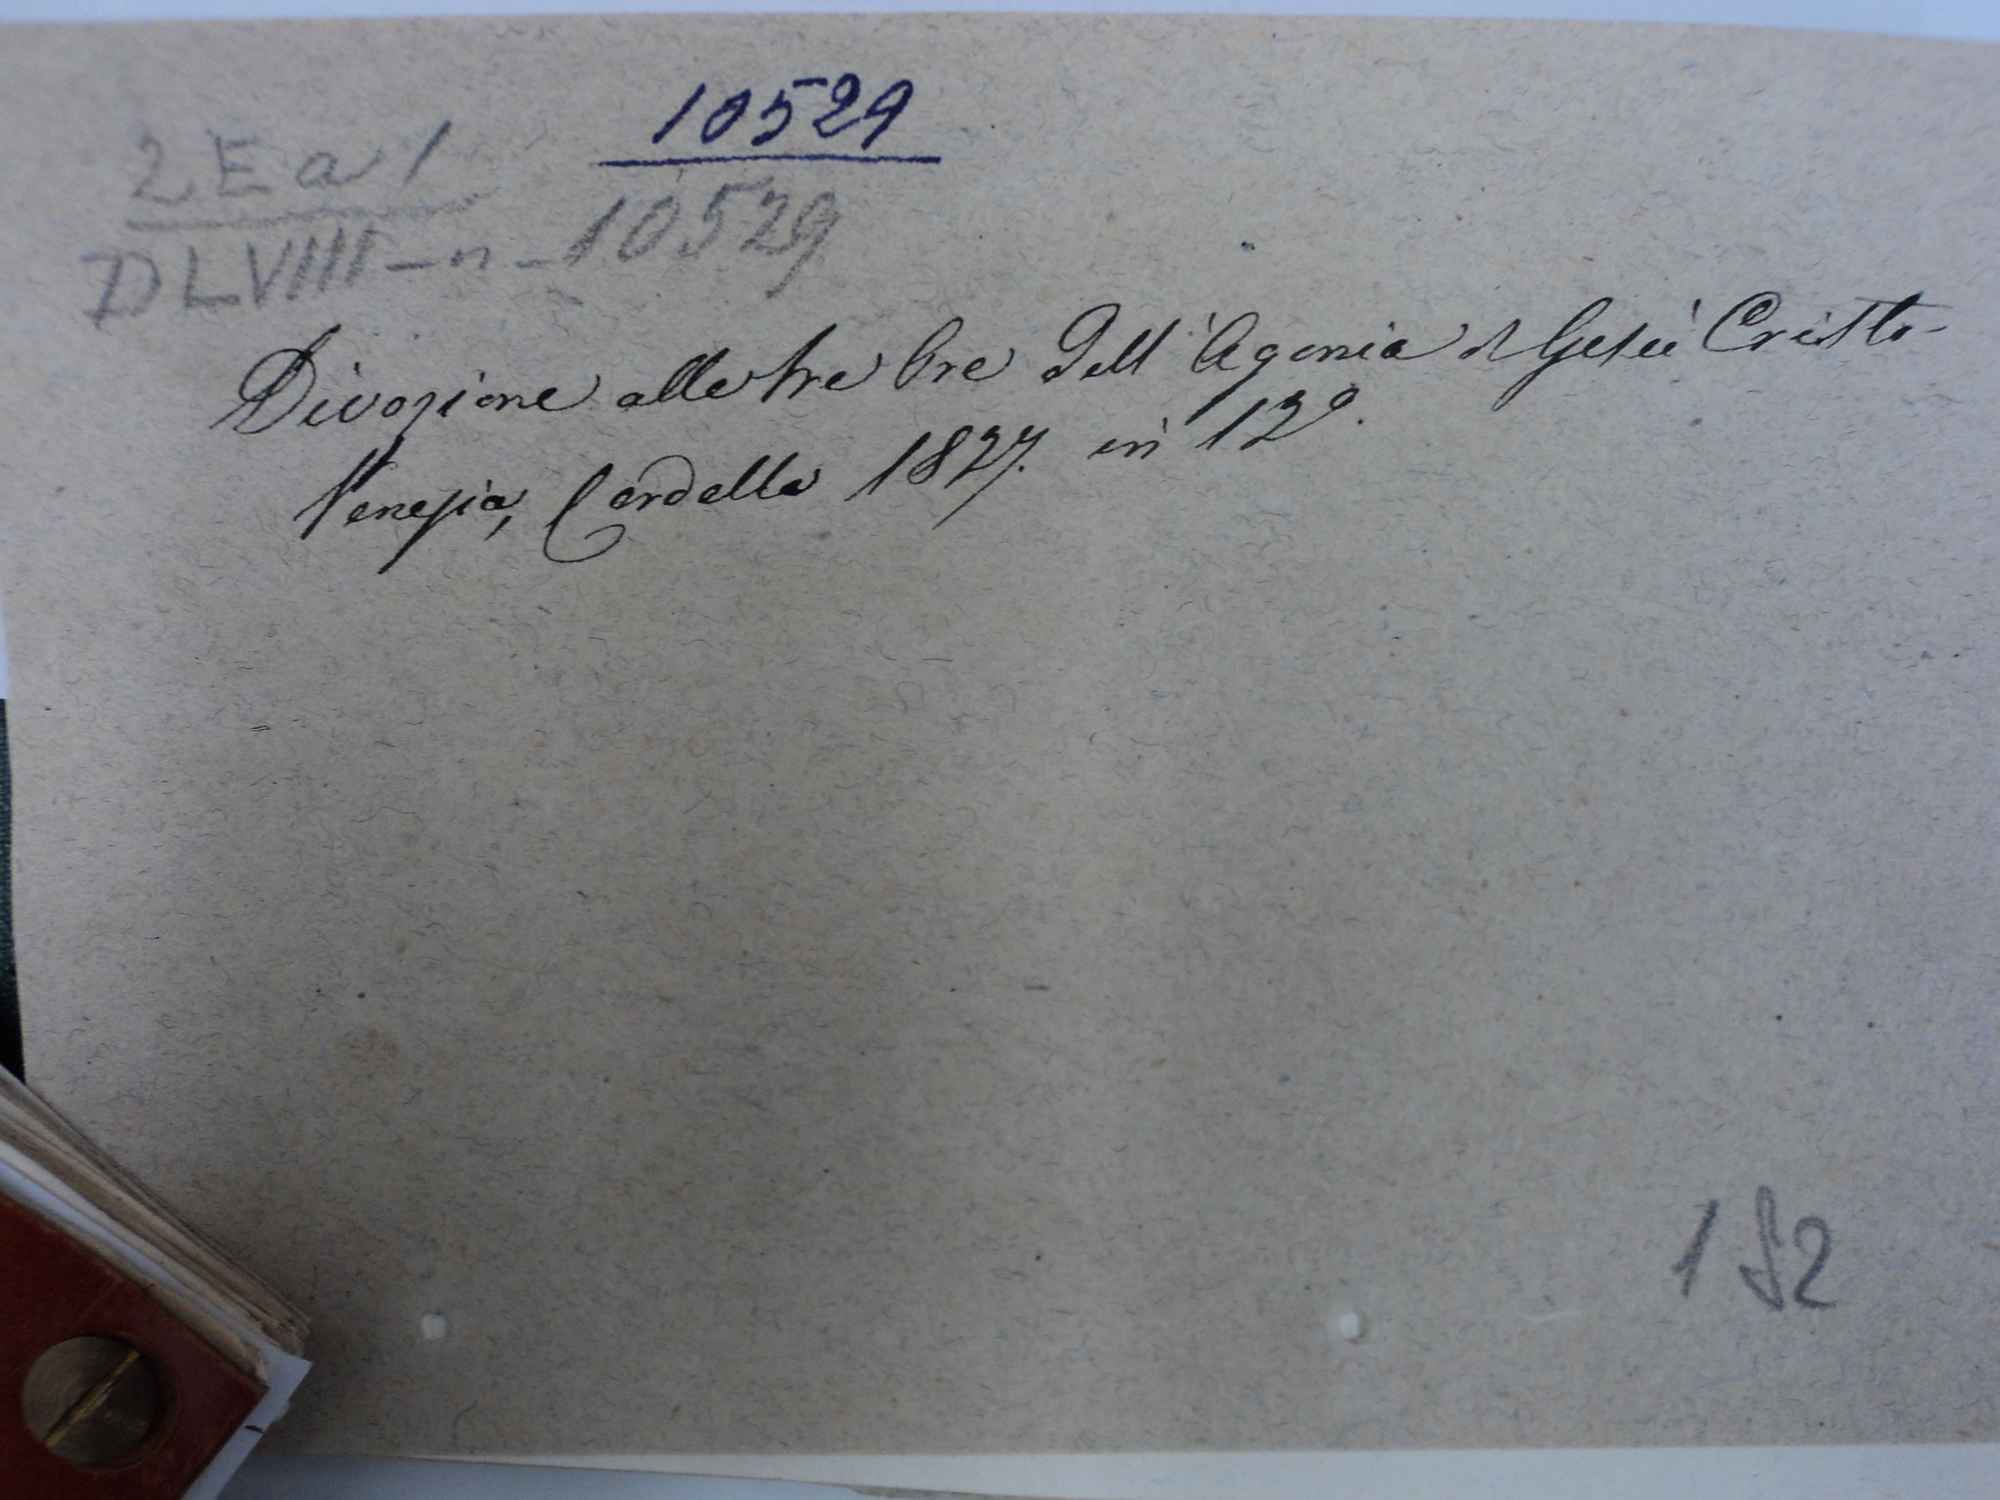 10529
2 E a 1
DLVIII - n - 10529
Divozione alle tre Ore Dell' Agonia d Gesù Cristo -
Venezia, Cordella 1827. in 12º.
182